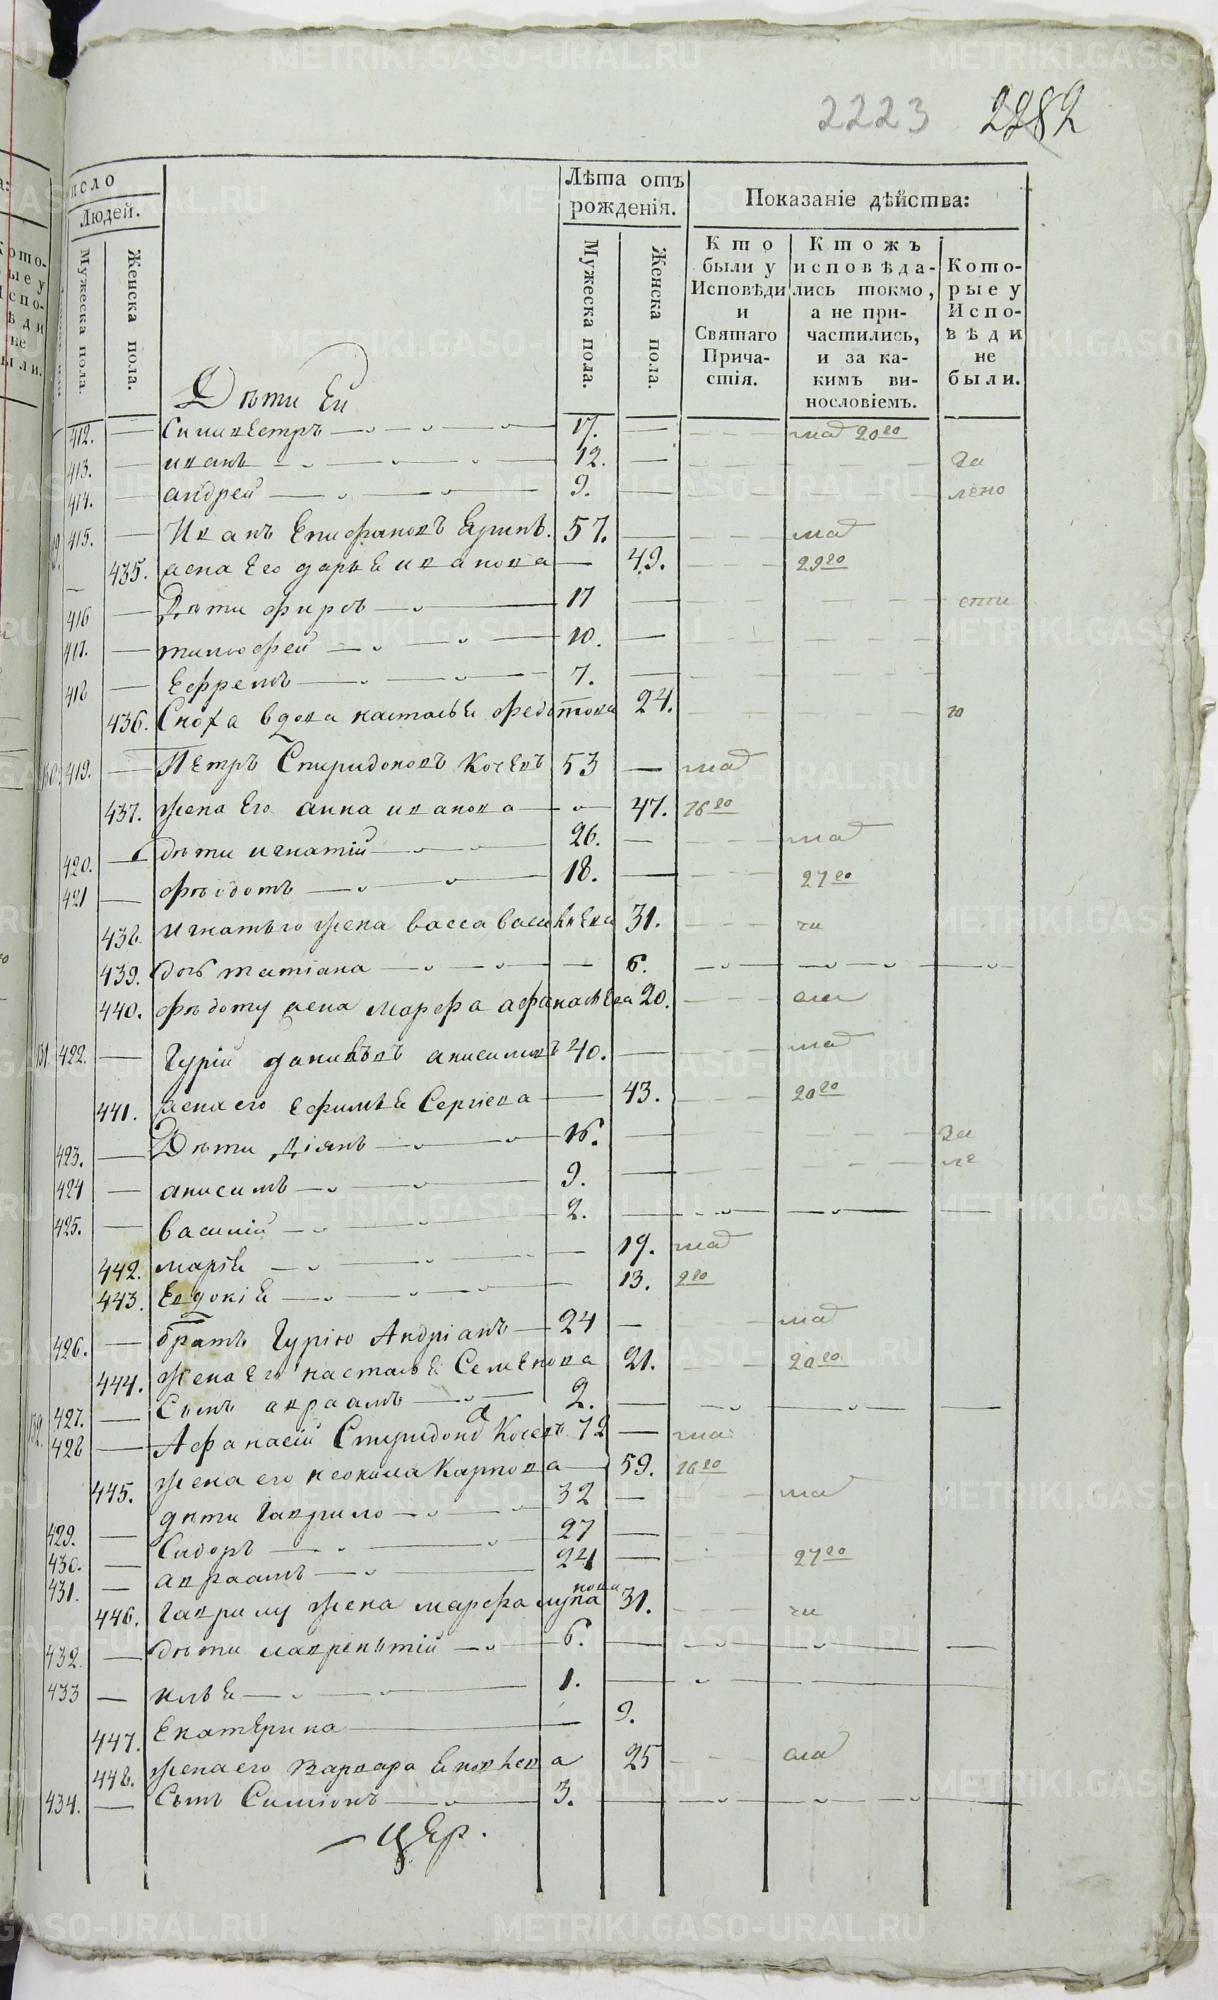 2223 2282
исло Людей.
Мужеска пола.
Женска пола.
Лѣта отъ рожденія.
Мужеска пола.
Женска пола.
Показаніе дѣйства:
Кто были у Исповѣди и Святаго Причастія.
Ктожъ исповѣдались токмо, а не причастились, и за какимъ винословіемъ.
Которые у Исповѣди не были.
Дѣти ея
412. — Силивестръ — 17. — 20
413. — иванъ — 12. —
414. — андрей — 9. —
415. — Иванъ Епифановъ 57. —
435. жена его дарья иванова — 49.
416 — Дѣти фирсъ — 17 —
417. — тимофей — 10. —
418 — Ефремъ — 7. —
436. Сноха вдова настасья федотова 24.
130. 419. — Петръ Спиридоновъ Кочевъ 53 —
437. жена его анна иванова — 47.
420. — дѣти игнатій — 26. —
421 — федотъ — 18. — 27
438. игнатью жена васса васильева 31.
439. дочь татіана — 6.
440. федоту жена марфа афанасьева 20.
131. 422. — Гурій данилъвъ анисимовъ 40. —
441. жена его ефимья Сергіева — 43. 20
423. — Дѣти діянъ — 16. —
424 — анисимъ — 9. —
425. — василій — 2. —
442. марія — 19.
443. Евдокія — 13.
426. — братъ Гурію Андріанъ — 24 —
444. жена его настасья Семенова 21. 20
427. — Сынъ авраамъ — 2. —
132. 428 — Афанасій Спиридоновъ Кочевъ 72 —
445. жена его неонила Карпова — 59.
429. — дѣти Гаврило — 32 —
430. — Сидоръ — 27 —
431. — авраамъ — 24 — 27
446. Гаврилу жена марфа лупанова 31.
432 — дѣти лаврентій — 6. —
433 — илья — 1. —
447. Екатерина — 9.
448. жена его варвара яковлева 25
434. — Сынъ Симіонъ — 3. —
— цер.
METRIKI.GASO-URAL.RU